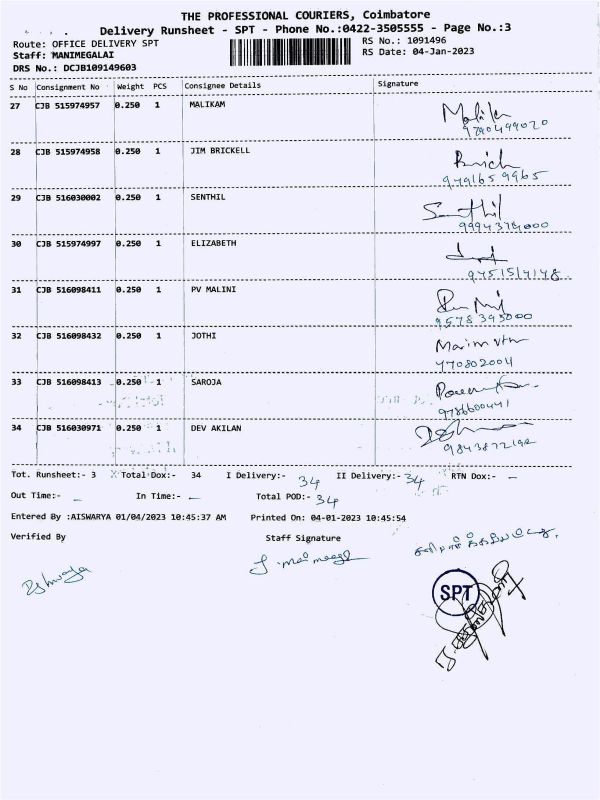 THE PROFESSIONAL COURIERS, Coimbatore
Delivery Runsheet - SPT - Phone No.:0422-3505555 - Page No.:3
Route: OFFICE DELIVERY SPT
RS No.: 1091496
Staff: MANIMEGALAI
RS Date: 04-Jan-2023
DRS No.: DCJB109149603
S No Consignment No Weight PCS Consignee Details Signature
27 CJB 515974957 0.250 1 MALIKAM
9790499020
28 CJB 515974958 0.250 1 JIM BRICKELL
9791659965
29 CJB 516030002 0.250 1 SENTHIL Senthil
9994374000
30 CJB 515974997 0.250 1 ELIZABETH
31 CJB 516098411 0.250 1 PV MALINI
9578393000
32 CJB 516098432 0.250 1 JOTHI
770802004
33 CJB 516098413 0.250 1 SAROJA
9786600441
34 CJB 516030971 0.250 1 DEV AKILAN
Tot. Runsheet:- 3 Total Dox:- 34 I Delivery:- 34 II Delivery:- 34 RTN Dox:- -
Out Time:- - In Time:- - Total POD:- 34
Entered By :AISWARYA 01/04/2023 10:45:37 AM Printed On: 04-01-2023 10:45:54
Verified By Staff Signature
SPT